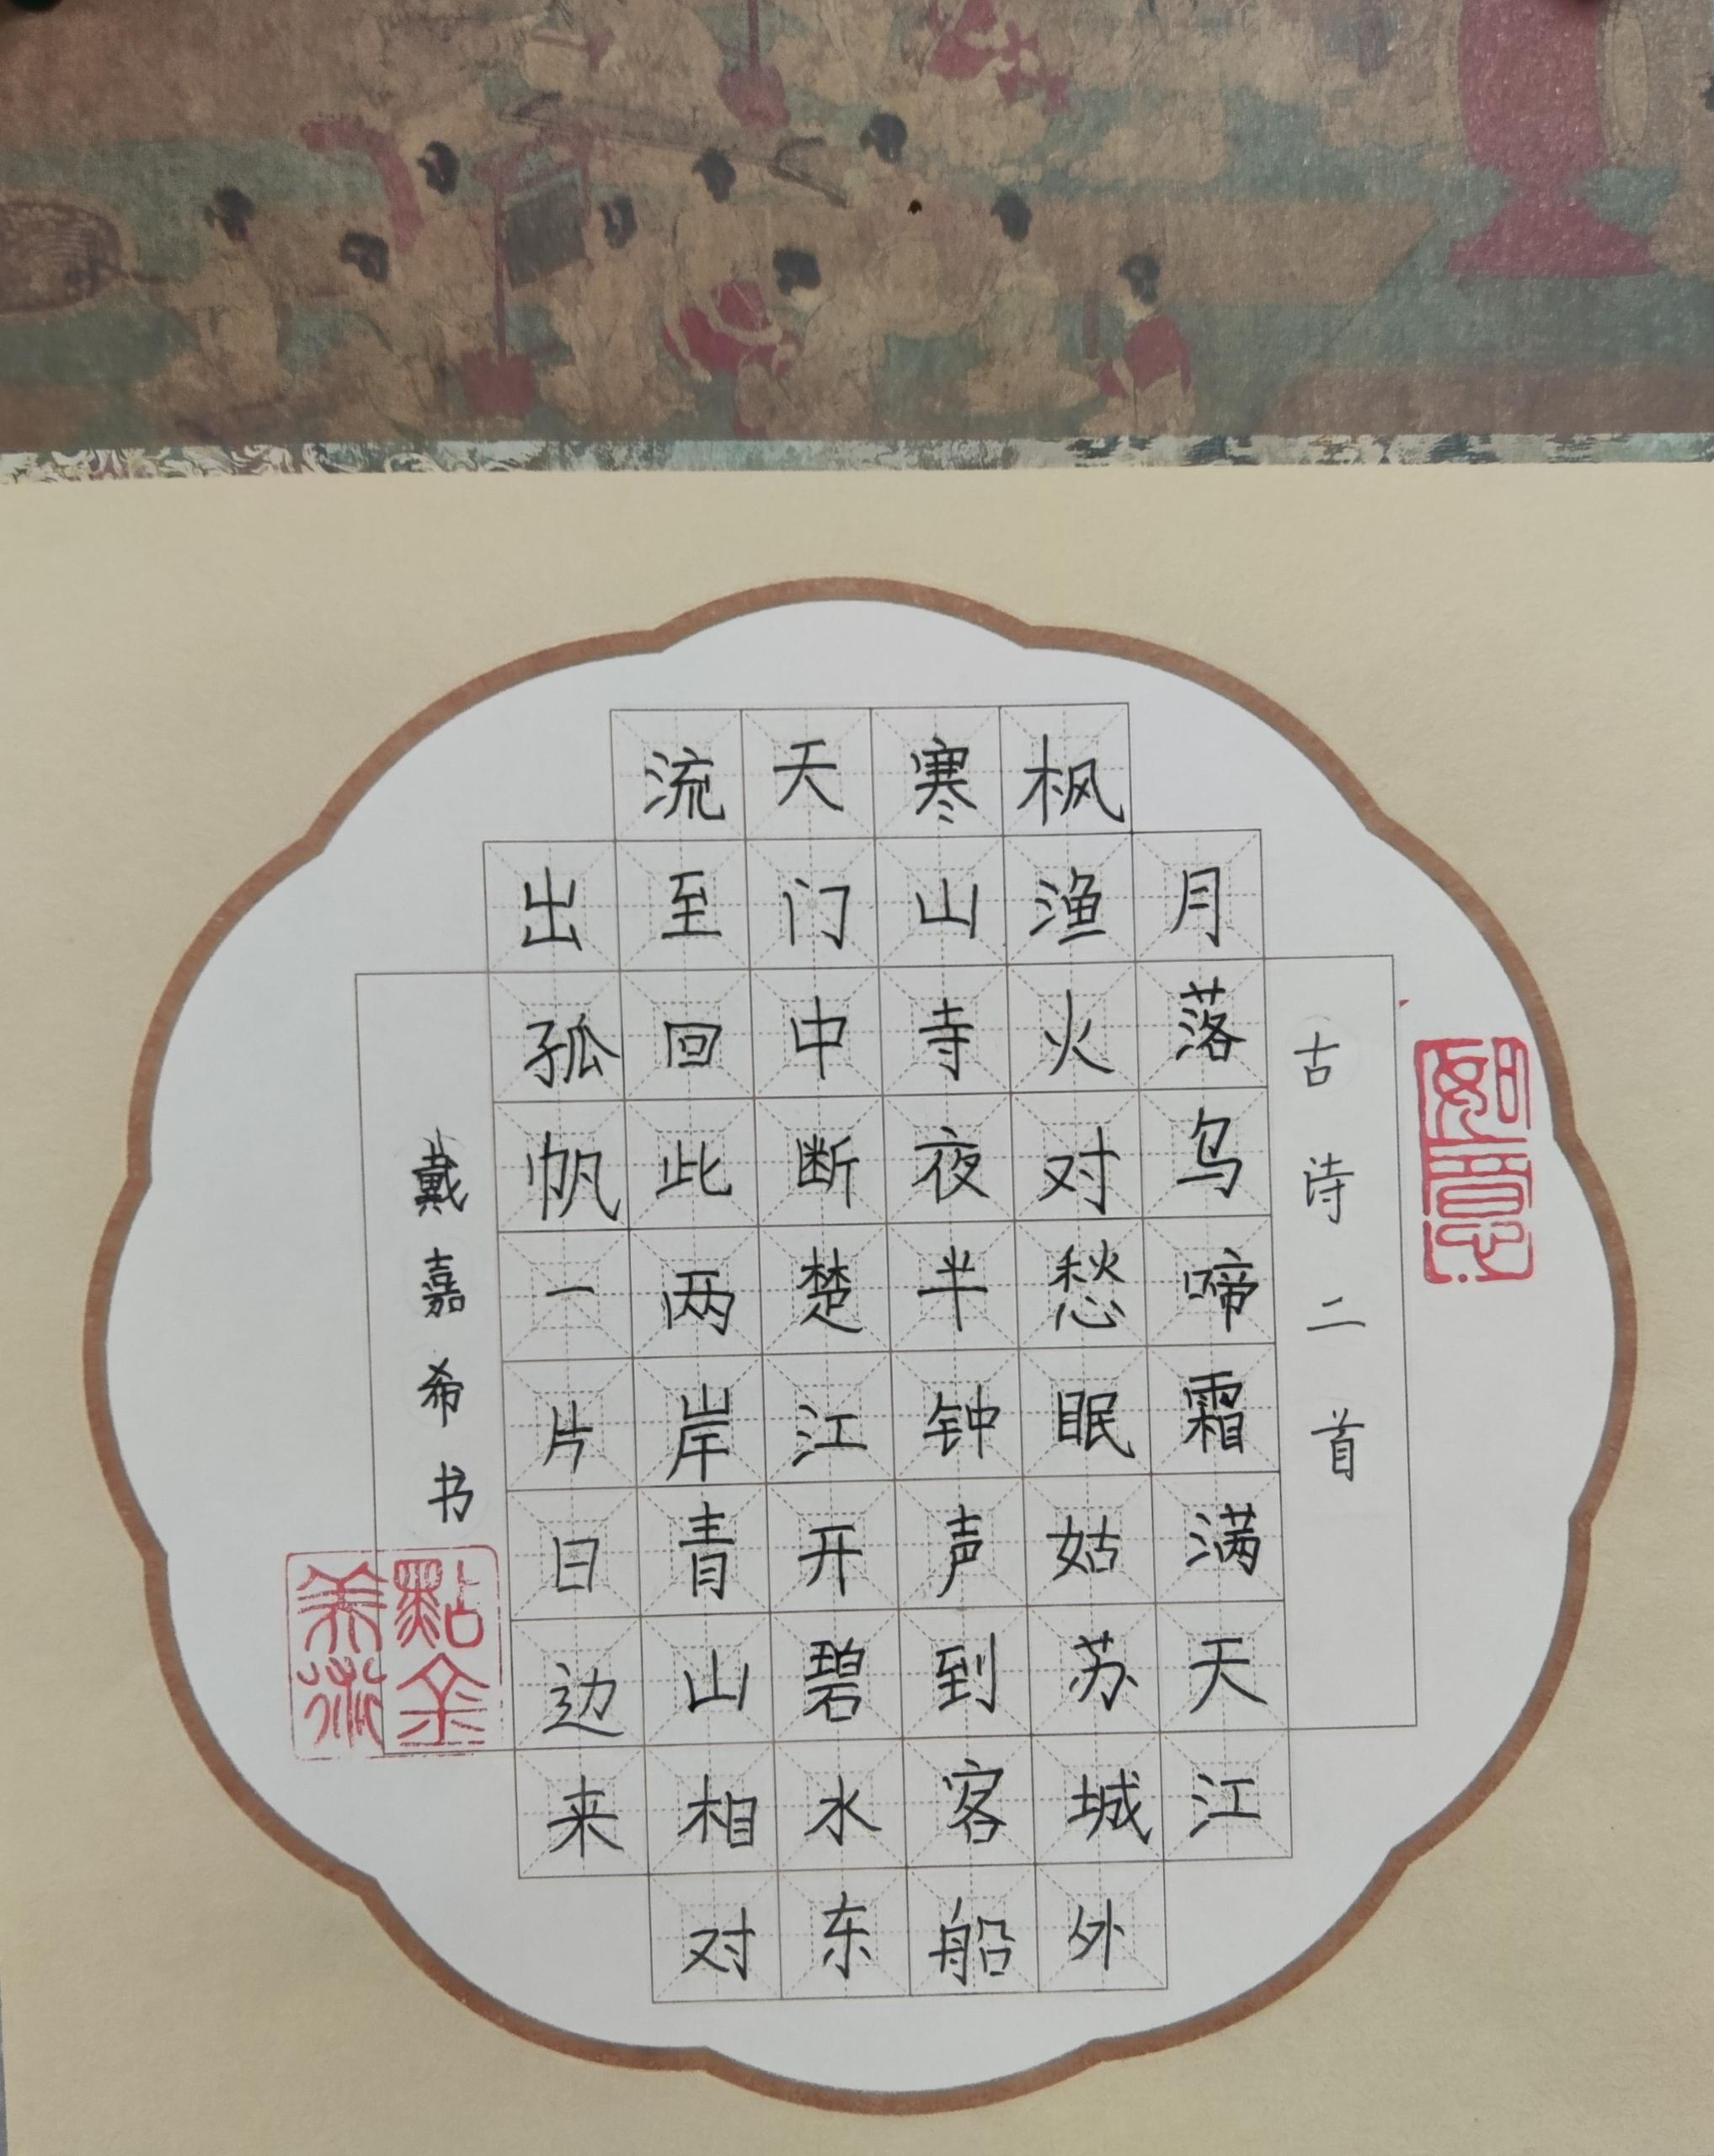 古诗二首
月落乌啼霜满天江
枫渔火对愁眠姑苏城外
寒山寺夜半钟声到客船
天门中断楚江开碧水东
流至回此两岸青山相对
出孤帆一片日边来
戴嘉希书
如意
點金
美术